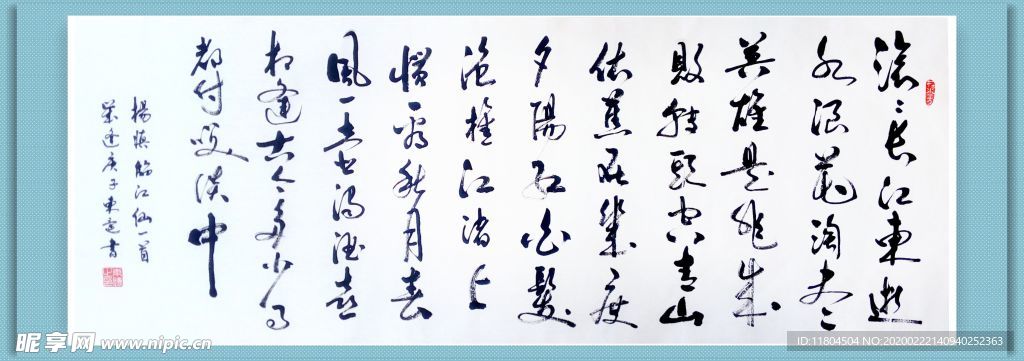 滚滚长江東逝
水浪花淘尽
英雄是非成
败转头空青山
依舊在幾度
夕陽红白髮
渔樵江渚上
惯看秋月春
風一壶濁酒喜
相逢古今多少事
都付笑谈中
楊慎临江仙一首
庚子東書
昵享网 www.nipic.cn
ID:11804504 NO:20200222140940252363